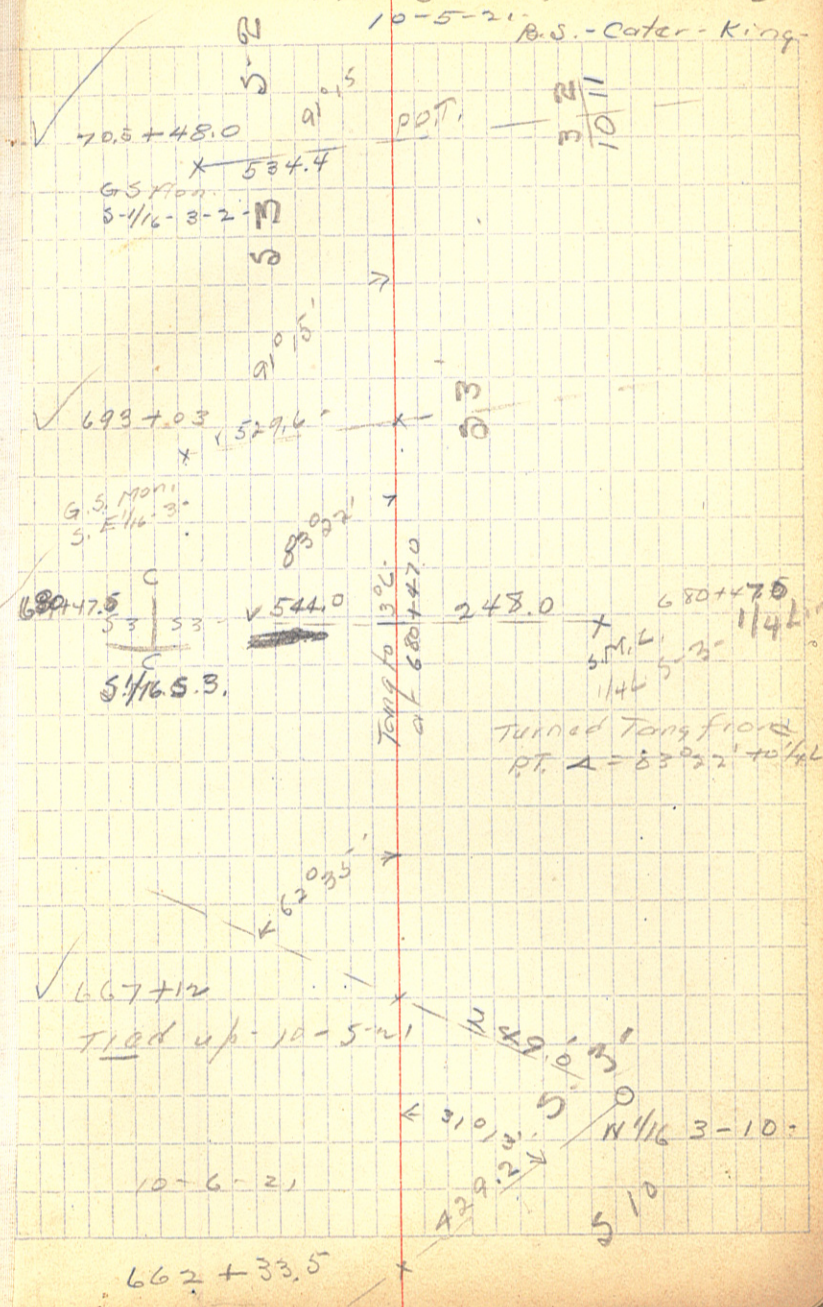 10-5-21
B.S.-Cater-King-
S-2
91°15
P.O.T.
3 2
10 11
705+48.0
534.4
G S Mon.
S-1/16-3-2-
S 3
91°15'
693+03
529.6
S 3
G.S. Mon.
S. E 1/16-3-
83°22'
680+47.5
C
S3 S3
C
544.0
S.1/16.S.3.
Tang to 3°C.
at 680+47.0
248.0
680+47.5
1/4 L
S.M.L.
1/4L S-3-
Turned Tang from
P.T. Δ = 83°22' to 1/4L
62°35'
667+12
Tied up-10-5-21
249.0
S 3
31°13'
N 1/16 3-10-
429.2
10-6-21
S 10
662+33.5